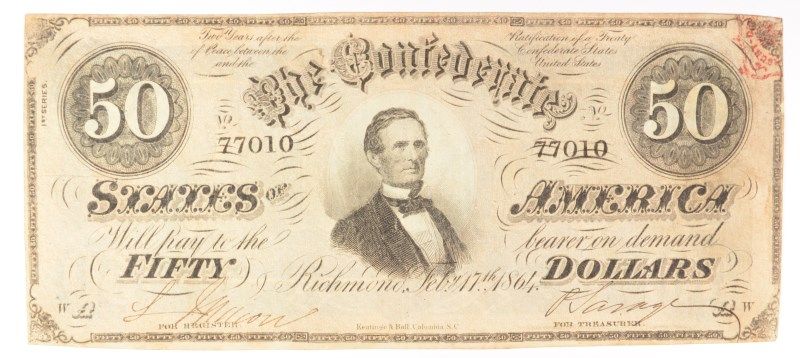 Two Years after the Ratification of a Treaty
of Peace between the Confederate States
and the United States
The Confederate
1ST SERIES.
50 50
No. No.
77010 77010
STATES OF AMERICA
Will pay to the bearer on demand
FIFTY DOLLARS
Richmond, Feby. 17th. 1864.
W D D W
FOR REGISTER
Keatinge & Ball, Columbia, S.C.
FOR TREASURER